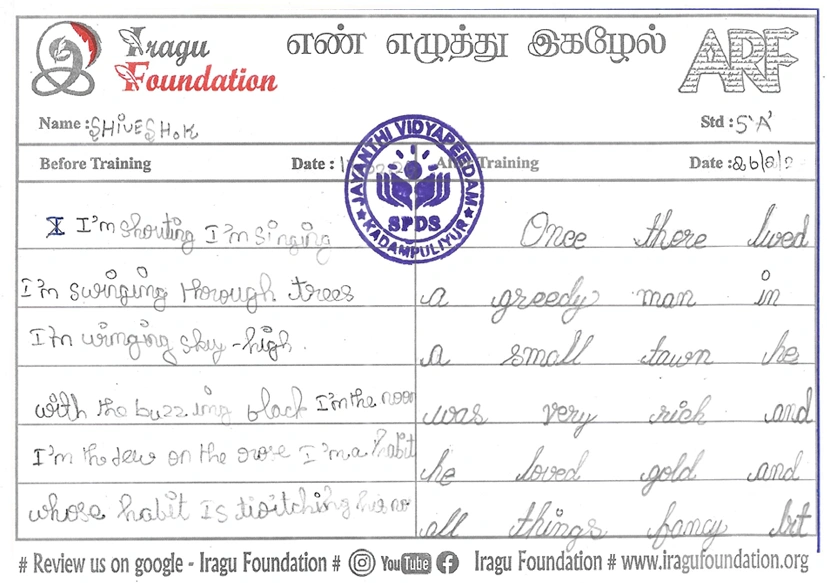 Iragu Foundation
எண் எழுத்து இகழேல்
ARF
Name : SHIVESHOK
Std : 5 'A'
Before Training Date :
After Training Date : 26/8/2
JAYANTHI VIDYAPEEDAM
SPDS
KADAMPULIYUR
I I'm shouting I'm singing
I'm swinging thorough trees
I'm winging sky-high
with the buzzing black I'm the
I'm the dew on the I'm a habit
whose habit Is his
Once there lived
a greedy man in
a small tawn he
was very rich and
he loved gold and
all things fancy bit
# Review us on google - Iragu Foundation # YouTube f Iragu Foundation # www.iragufoundation.org